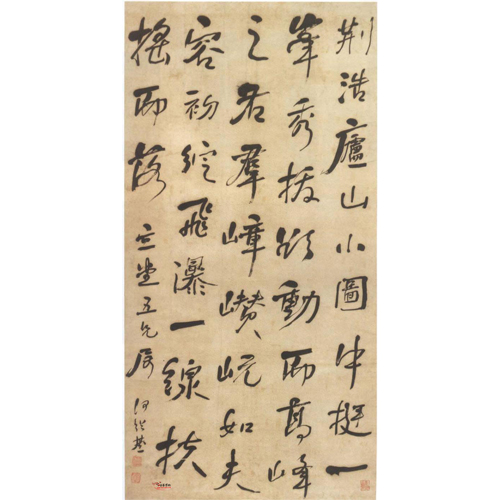 荆浩廬山小圖中挺一
峯秀拔欲動而高峰
之右羣嶂巑岏如夫
容初綻飛瀑一線扶
搖而落
堂五兄屬
何紹基